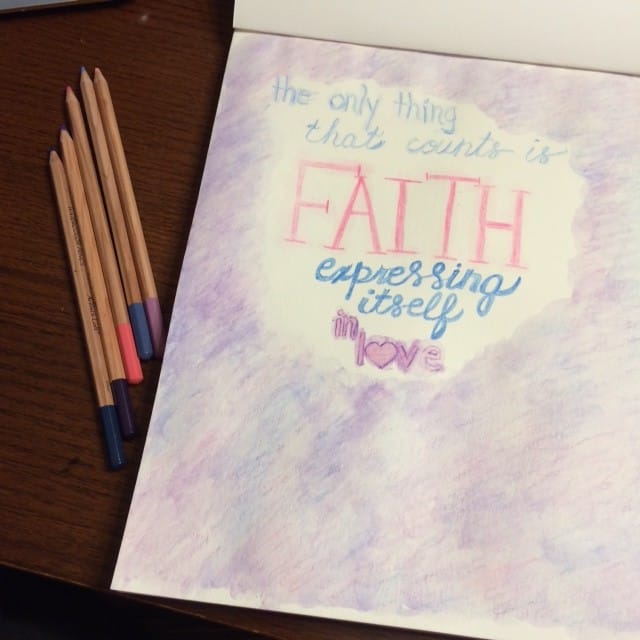 the only thing
that counts is
FAITH
expressing
itself
in
love